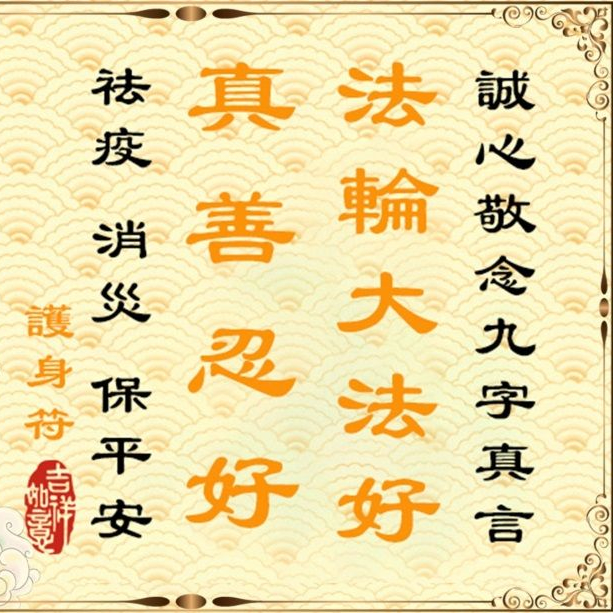 誠心敬念九字真言
法輪大法好
真善忍好
祛疫 消災 保平安
護身符
吉祥如意